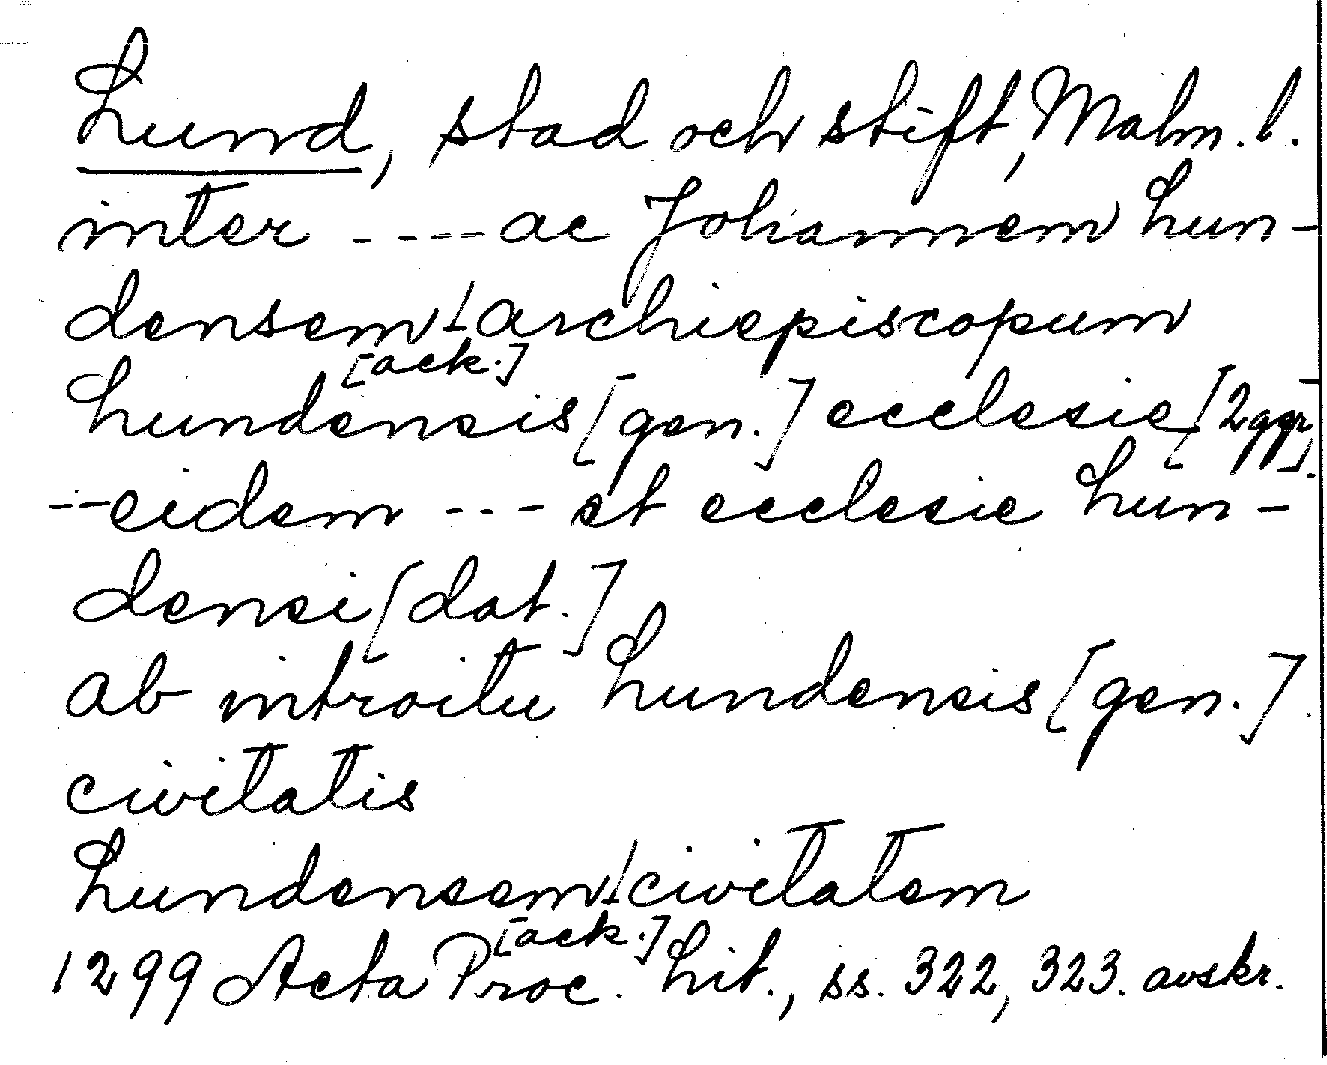 Lund, stad och stift, Malm. l.
inter ---- ac Johannem Lun-
densem archiepiscopum
[ack.]
Lundensis [gen.] ecclesie [2 ggr]
--eidem --- et ecclesie Lun-
densi [dat.]
ab introitu Lundensis [gen.]
civitatis
Lundensem civitatem
[ack.]
1299 Acta Proc. Lit., ss. 322, 323. avskr.